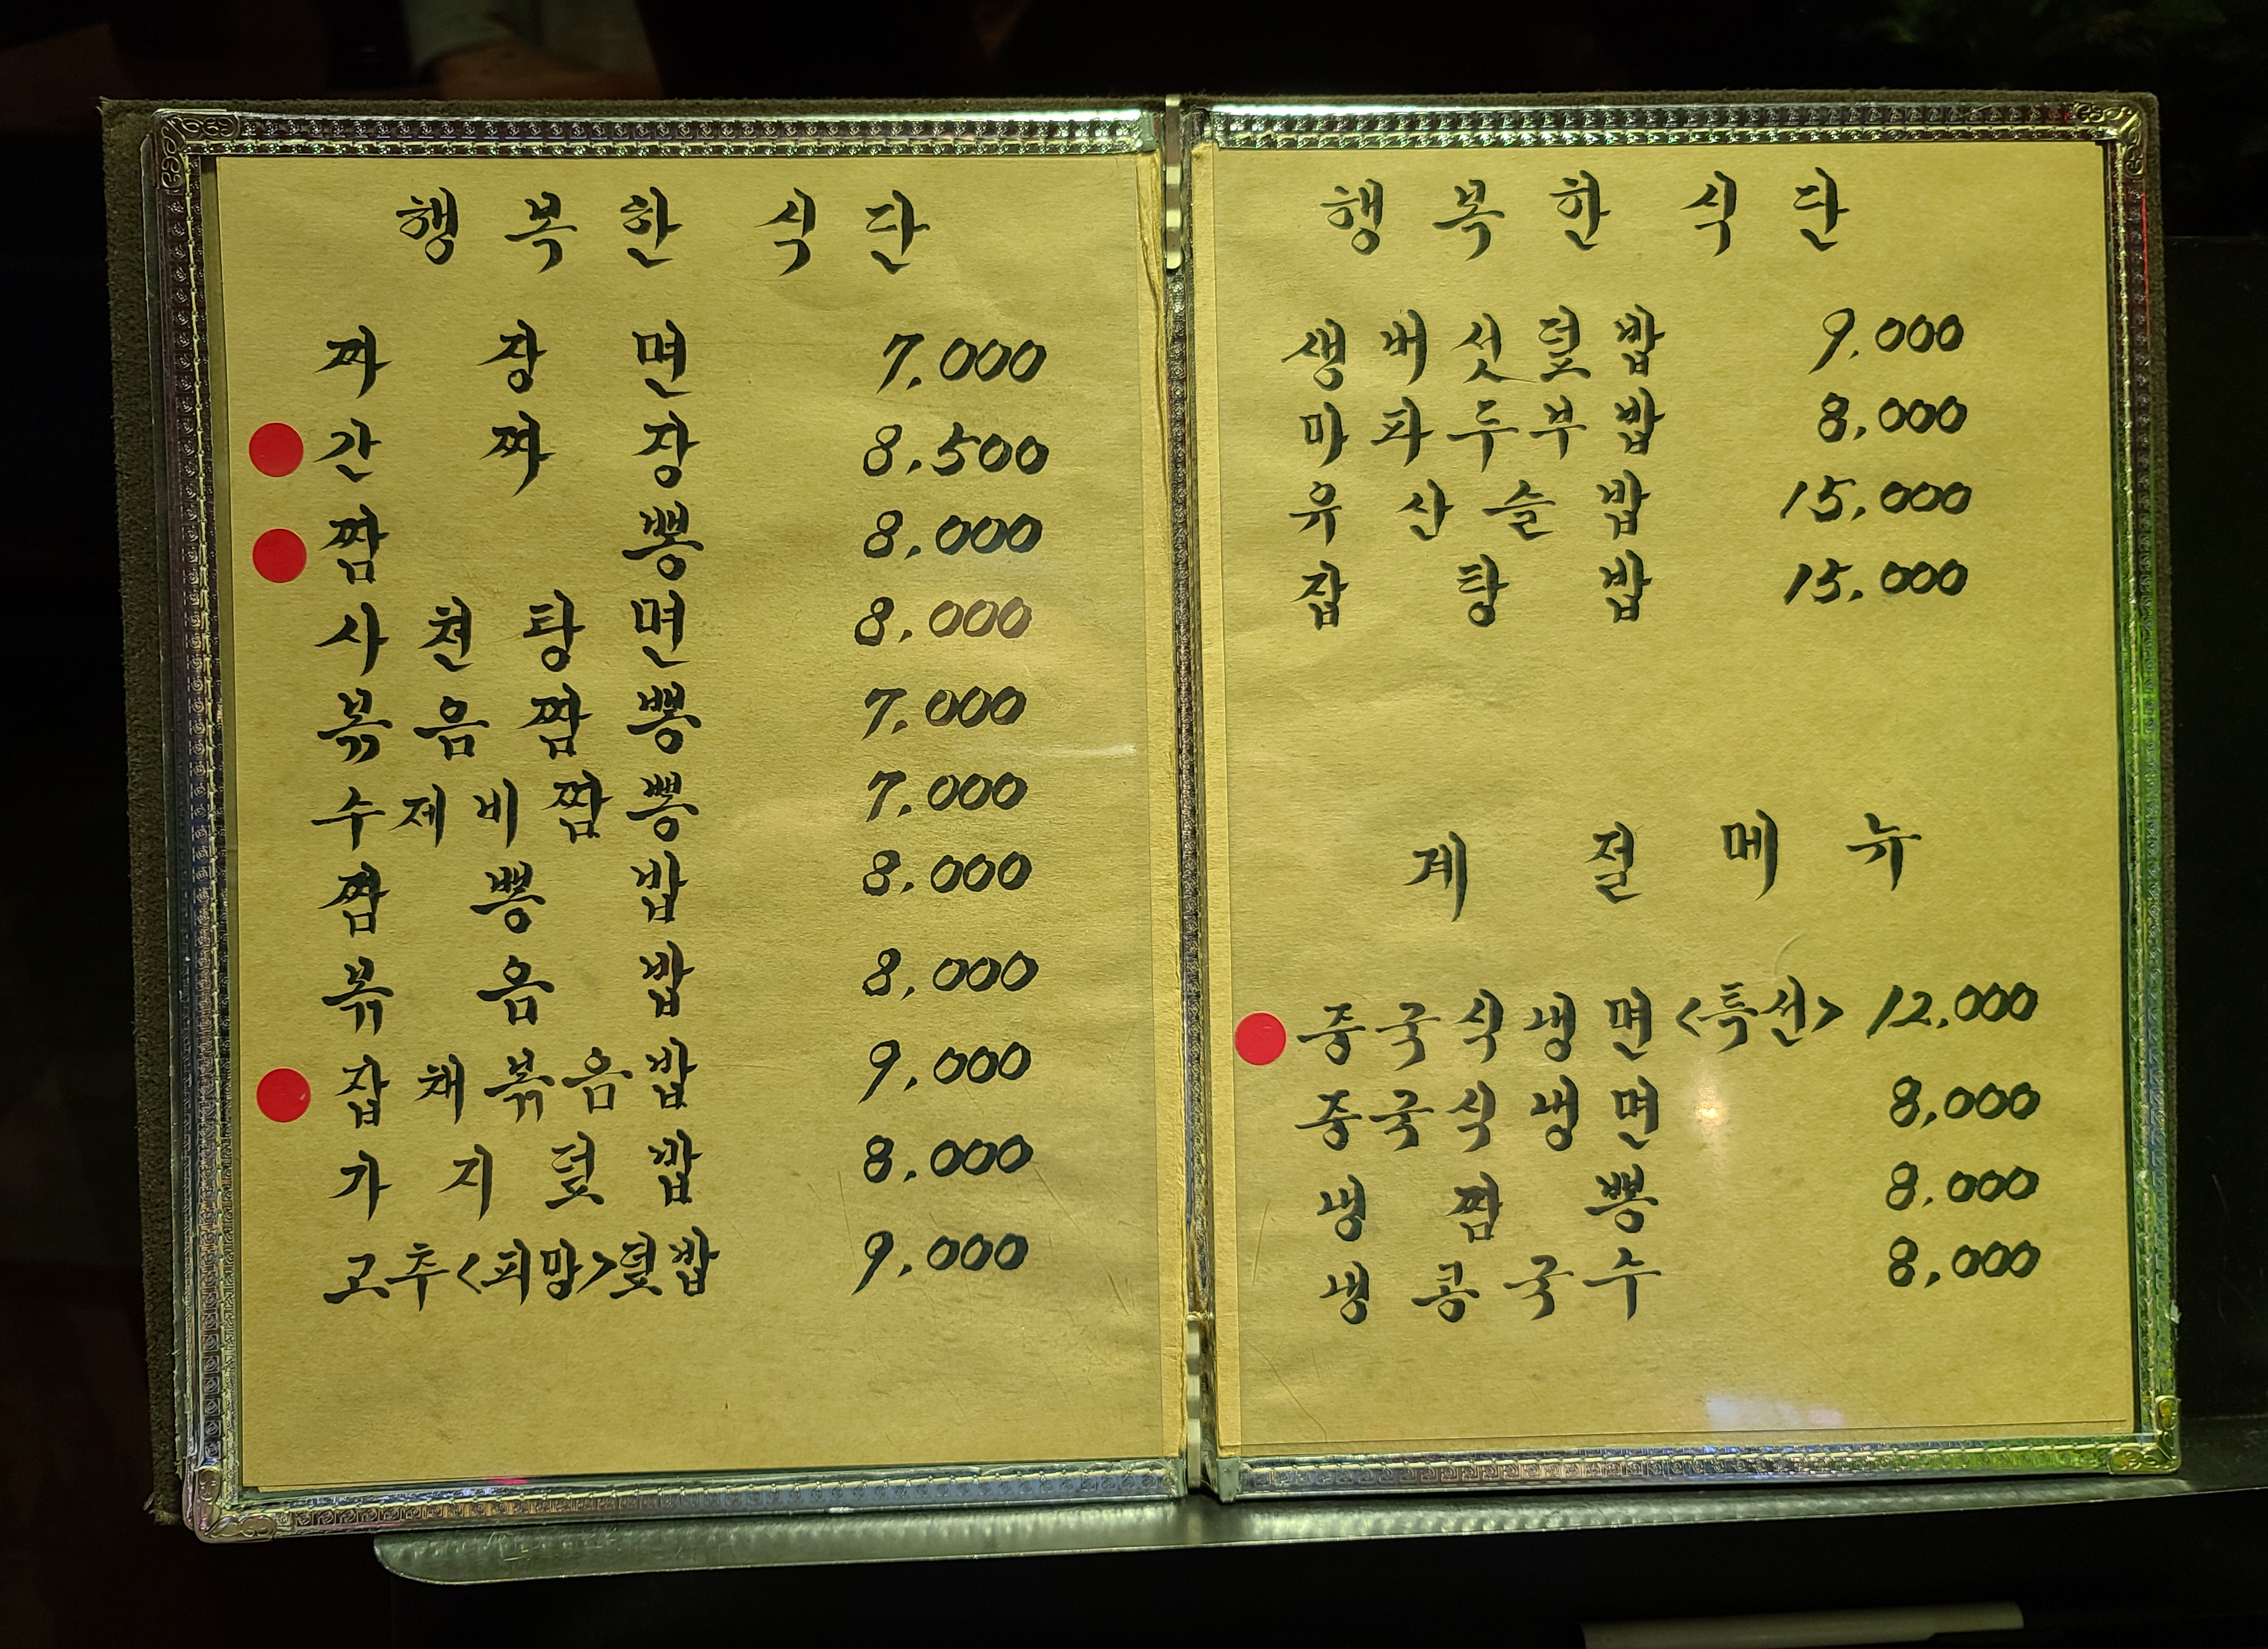 행복한 식단
짜장면 7,000
간짜장 8,500
짬뽕 8,000
사천탕면 8,000
볶음짬뽕 7,000
수제비짬뽕 7,000
짬뽕밥 8,000
볶음밥 8,000
잡채볶음밥 9,000
가지덮밥 8,000
고추<피망>덮밥 9,000
행복한 식단
생버섯덮밥 9,000
마파두부밥 8,000
유산슬밥 15,000
잡탕밥 15,000
계절메뉴
중국식냉면<특선> 12,000
중국식냉면 8,000
냉짬뽕 8,000
냉콩국수 8,000